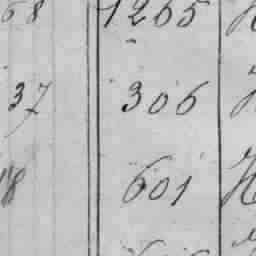 68 1265
37 306
18 601